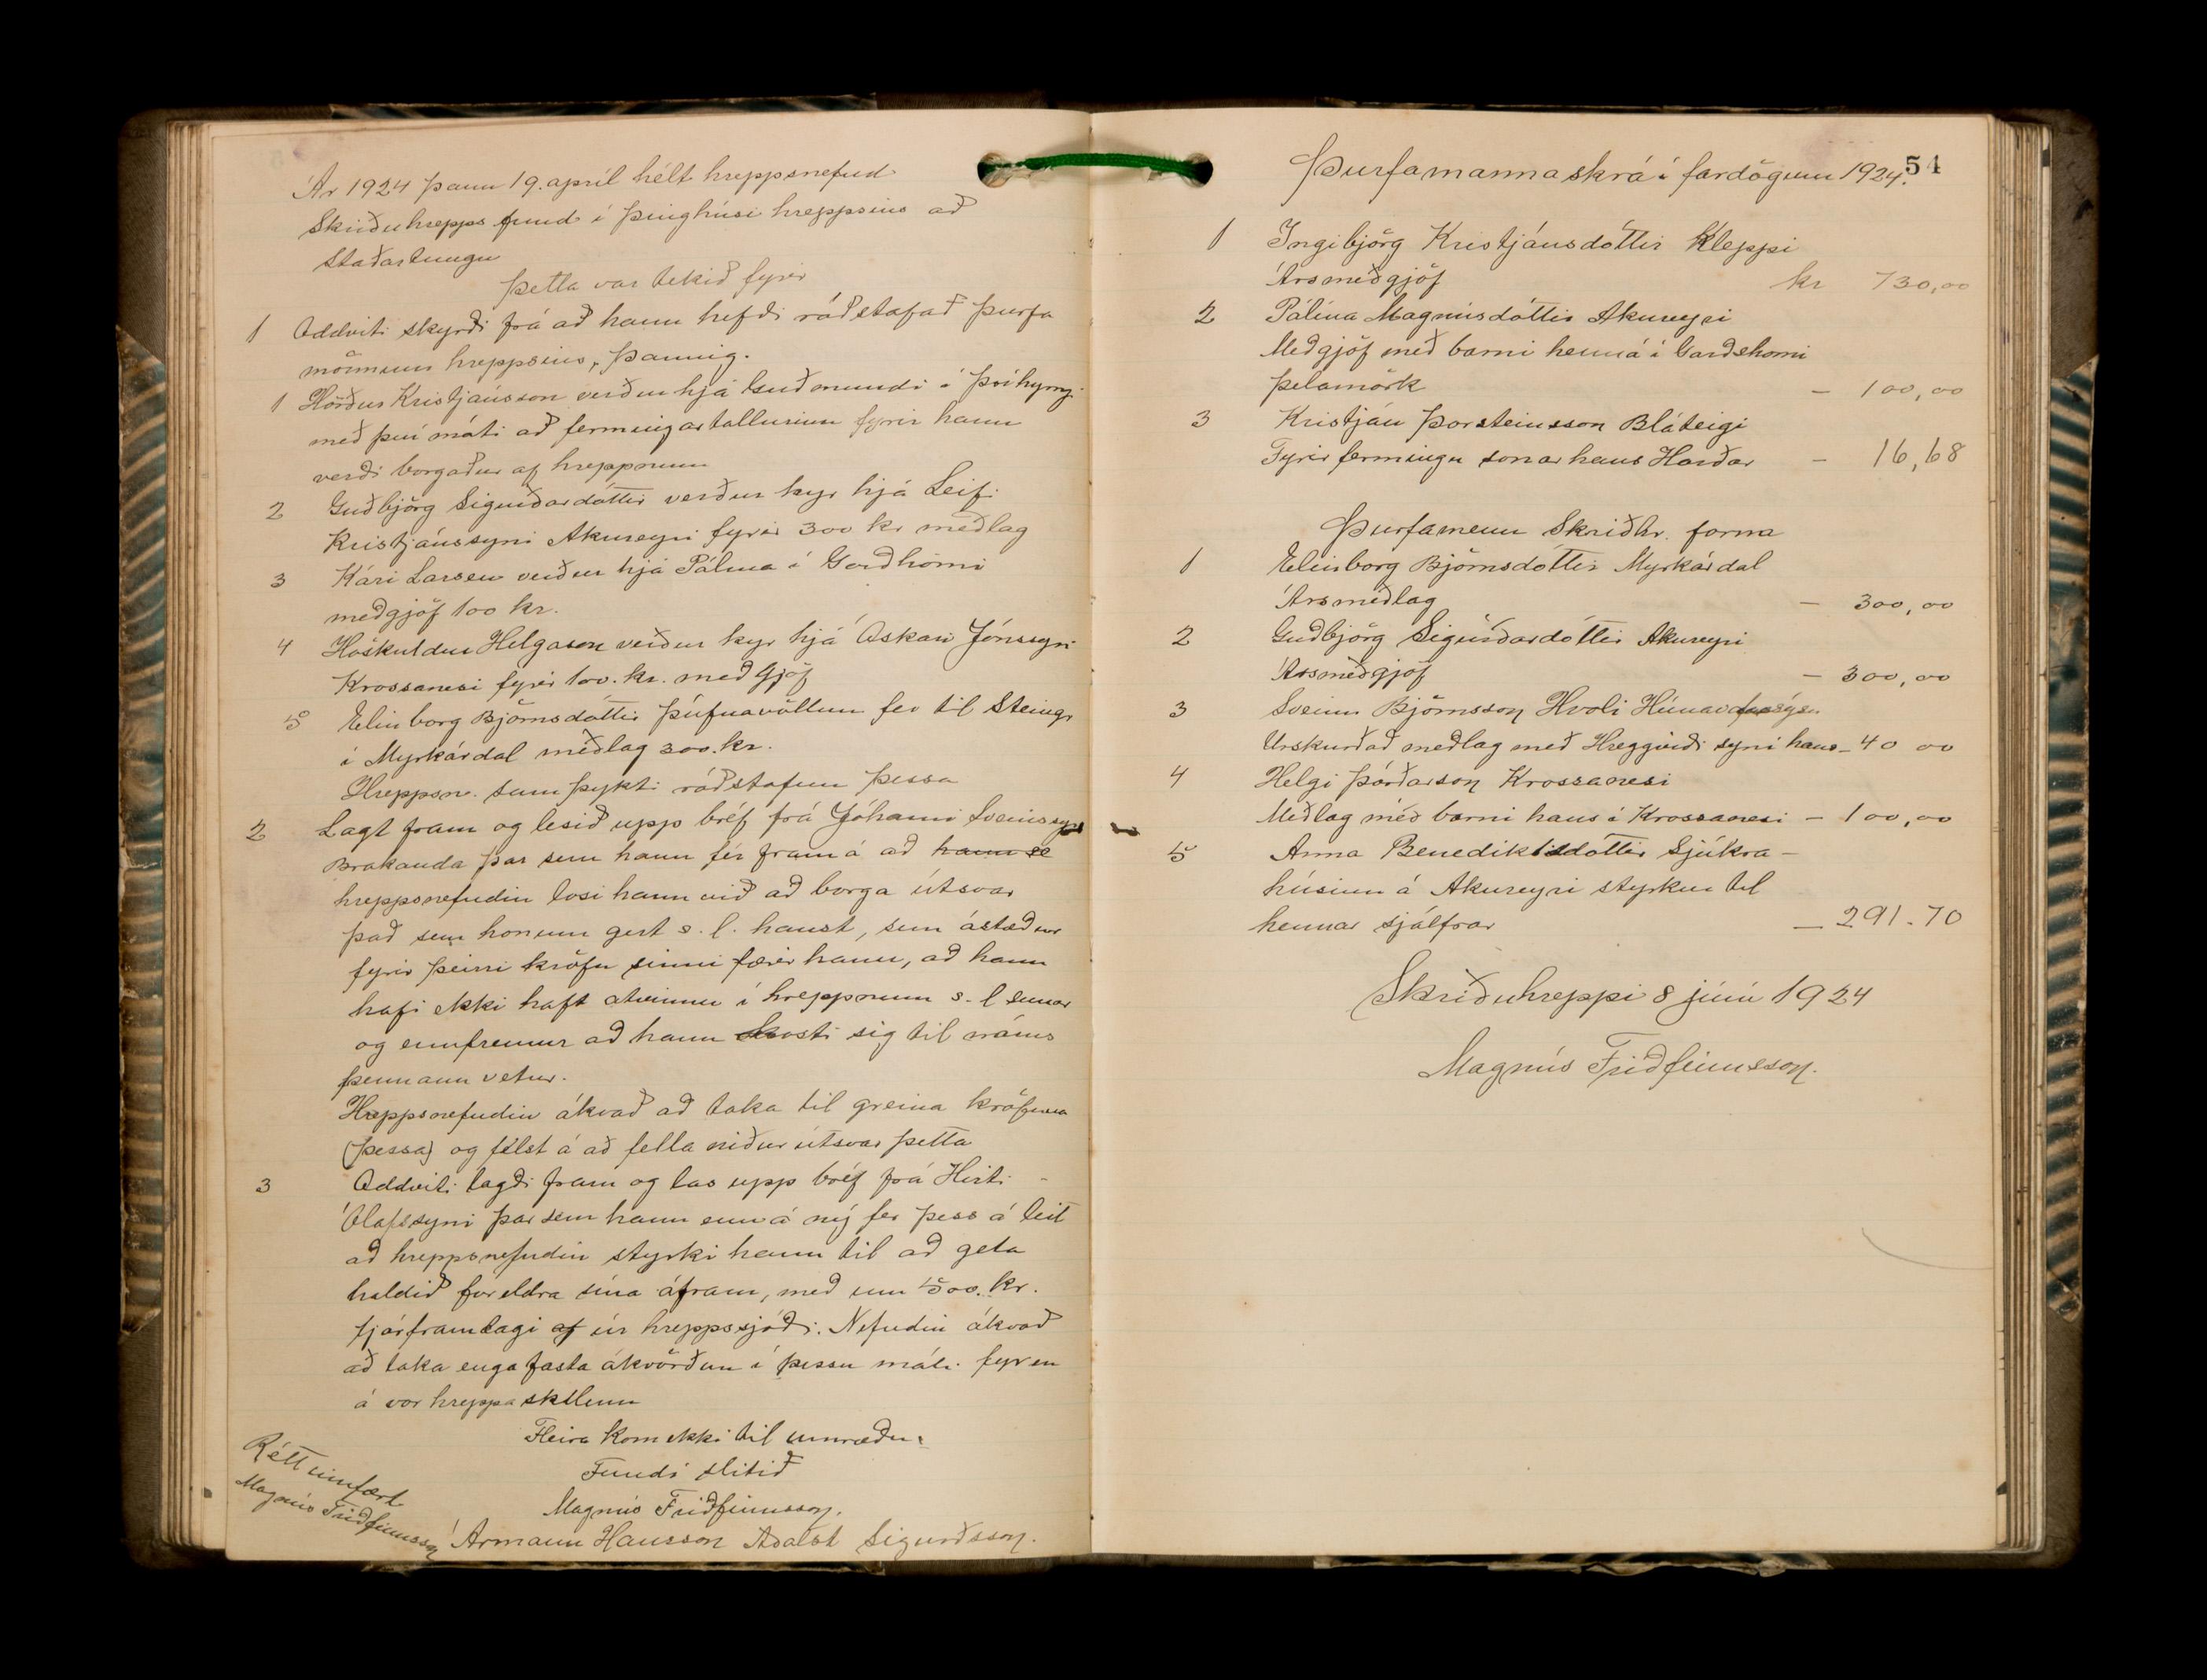 Ár 1924 þann 19. apríl hélt hreppsnefnd
Skriðuhrepps fund í þinghúsi hreppsins að
Staðartungu
Þetta var tekið fyrir
1 Oddviti skyrði frá að hann hefði ráðstafað þurfa
mönnum hreppsins, þannig.
1 Hörður Kristjánsson verður hjá Guðmundi í Þríhyrng.
með því móti að fermingartollurinn fyrir hann
verði borgaður af hreppnum
2 Guðbjörg Sigurðardóttir verður kyr hjá Leifi
Kristjánssyni Akureyri fyrir 300 kr meðlag
3 Kári Larsen verður hjá Pálma í Garðhorni
meðgjöf 100 kr.
4 Höskuldur Helgason verður kyr hjá Oskari Jónssyni
Krossanesi fyrir 100. kr. með gjöf
5 Elinborg Björnsdóttir Þúfnavöllum fer til Steingr
í Myrkárdal meðlag 300. kr.
Hreppsn. samþykti ráðstöfun þessa
2 Lagt fram og lesið upp bréf frá Jóhanni Sveinssyni
Brakanda þar sem hann fer fram á að hann se
hreppsnefndin losi hann við að borga útsvar
það sem honum gert s. l. haust, sem ástæður
fyrir þeirri kröfu sinni færir hann, að hann
hafi ekki haft atvinnu í hreppnum s. l sumar
og ennfremur að hann kosti sig til náms
þennann vetur.
Hreppsnefndin ákvað að taka til greina kröfuna
(þessa) og félst á að fella niður útsvar þetta
3 Oddviti lagði fram og las upp bréf frá Hirti
Ólafssyni þar sem hann enn á ný fer þess á leit
að hreppsnefndin styrki hann til að geta
haldið foreldra sína áfram, með um 500. kr.
fjárframlagi af úr hreppssjóði. Nefndin ákvað
að taka enga fasta ákvörðun í þessu máli fyr en
á vor hreppaskilum
Fleira kom ekki til umræðu.
Fundi slitið
Magnús Friðfinnsson.
Ármann Hansson Aðalst Sigurðsson.
Rétt innfært
Magnús Friðfinnsson
54
Þurfamannaskrá í fardögum 1924.
1 Ingibjörg Kristjánsdóttir Kleppi
Ársmeðgjöf kr 730,00
2 Pálína Magnúsdóttir Akureyri
Meðgjöf með barni hennar í Garðshorni
Þelamörk – 100,00
3 Kristján Þorsteinsson Bláteigi
Fyrir fermingu sonar hans Harðar – 16,68
Þurfamenn Skriðhr. forna
1 Elinborg Björnsdóttir Myrkárdal
Ársmeðlag – 300,00
2 Guðbjörg Sigurðardóttir Akureyri
Ársmeðgjöf – 300,00
3 Sveinn Björnsson Hvoli Húnav
Urskurðað meðlag með Hreggviði syni hans – 40 00
4 Helgi Þórðarson Krossanesi
Meðlag með barni hans í Krossanesi – 100,00
5 Anna Benediktsdóttir Sjúkra–
húsinu á Akureyri styrkur til
hennar sjálfrar – 291.70
Skriðuhreppi 8 júní 1924
Magnús Friðfinnsson.